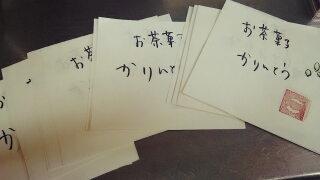 お茶菓子
かりんとう
お茶菓
かりんとう
お茶
か